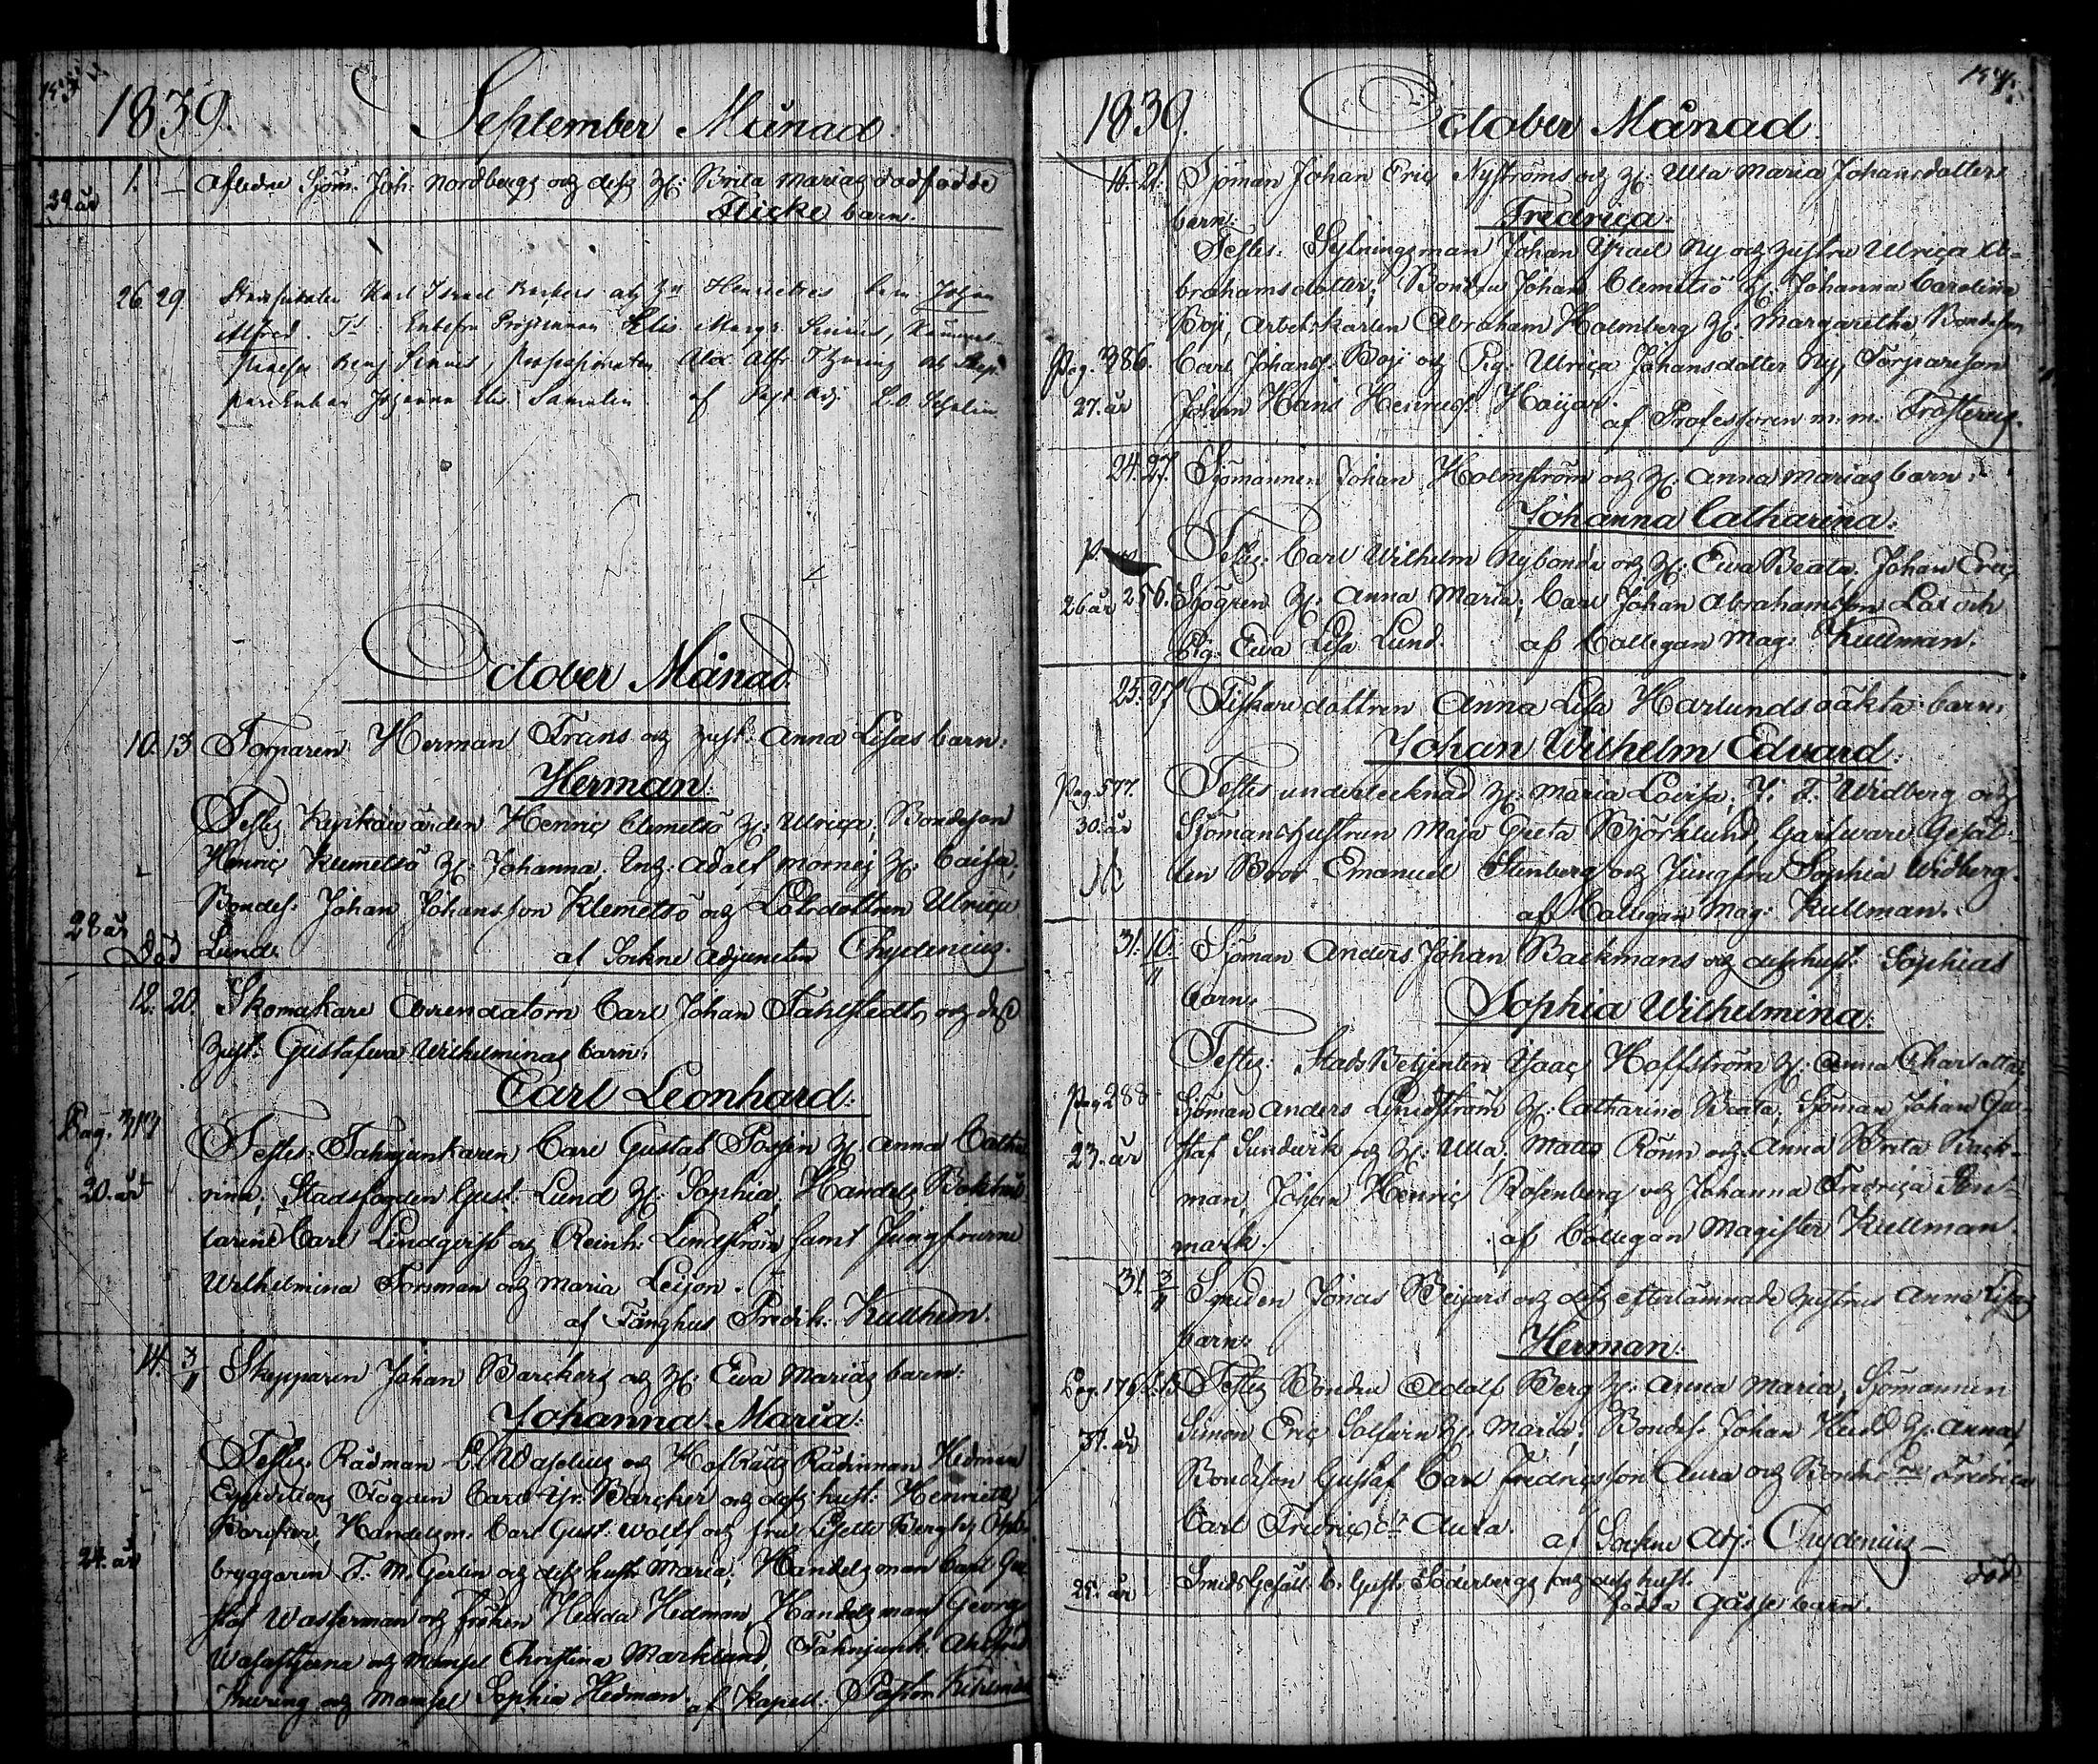 1839. September Månad.
29. år 1. — Afledne Sjöm. Joh. Nordbergs och dess H: Brita Marias dödfödde
Flicke barn.
26 29 Karl Israel Barkers och Henriettes barn Johan
Alfred. Elis Marg.
Alex. Alfr. Thuring och
Johanna Elis. af Past. Adj.
October Månad
10. 13 Torparen Herman Frans och hust. Anna Lisas barn:
Herman:
Testes Kyrkowärden Henric Clemetsö H: Ulrica, Bondeson
Henric Klemetsö H: Johanna. Adolf H: Caisa,
Bondes. Johan Johansson Klemetsö och Lotsdottren Ulrica
28 år
Död Lund. af Sockne Adjuncten Chydenius.
12. 20. Skomakare Arrendatorn Carl Johan Fahlstedts och dess
hust: Gustafwa Wilhelminas barn:
Carl Leonhard:
Pag. 317
Testes: Fahnjunkaren Carl Gustaf H: Anna Catha
20. år rina, Stadsfogden Gust. Lund H: Sophia, Handels Bokhål
larne Carl Lindqvist och Reinh: Lindström samt Jungfrurne
Wilhelmina Forsman och Maria Leijon.
af Fånghus Predik. Kullhem.
14. 3/11 Skepparen Johan Barckers och H: Ewa Marias barn:
Johanna Maria:
Testes. Rådman Waselius och HofRätts Rådinnan Hedman
Expeditions Fogden Carl Barcker och dess hust: Henriette
Barcker, Handelsm. Carl Gust: Wolff och fru Lisette
24. år bryggaren F. M. Gerlin och dess hust. Maria, Handelsman Carl Gu
staf Wasserman och fröken Hedda Hedman, Handelsman Georg
Wasastjerna och Mamsel Christina Marklund, Fahnjunk.
Thuring och Mamsel Sophia Hedman. af Kapell. Pastor
1839. October Månad. 154.
16. 21. Sjöman Johan Eric Nyströms och H: Ulla Maria Johansdotters
barn: Fredrica:
Testes: Sytningsman Johan Ysrael Ny och hustru Ulrica A-
brahamsdotter, Bonden Johan Clemetsö H: Johanna Carolina
Böji, Arbetskarlen Abraham Holmberg H: Margaretha, Bondeson
Pag. 386. Carl Johans. Böji och Pig: Ulrica Johansdotter Ny, Torpareson
27. år Johan Hans Henricss. Höijar. af Professoren m. m. Frosterus.
24. 27. Sjömannen Johan Holmström och H: Anna Marias barn:
Johanna Catharina:
Testes: Carl Wilhelm Nybonde och H: Ewa Beata, Johan Eric
26 år 256. Sjögren H: Anna Maria, Carl Johan Abrahamsson Lax och
Pig: Ewa Lisa Lund. af Collegan Mag: Kullman.
25. 27 Fiskaredottren Anna Lisa Harlunds oäkta barn:
Johan Wilhelm Edvard:
Pag. 577. Testes undertecknad H: Maria Lovisa, Widberg och
30. år Sjömanshustrun Maja Greta Björklund, Garfware Gesäl-
len Emanuel Stenberg och Jungfru Sophia Widberg.
af Collegan Mag: Kullman.
31. 10/11 Sjöman Anders Johan Backmans och dess hust: Sophias
barn: Sophia Wilhelmina:
Testes: StadsBetjenten Ysaac Hoffström H: Anna Charlotta,
Pag 288 Sjöman Anders Lindström H: Catharina Beata, Sjöman Johan Gu-
23. år staf Sundvik och H: Ulla, Matts Rönn och Anna Brita Back-
man, Johan Henric Rosenberg och Johanna Fredrica Sten-
mark. af Collegan Magister Kullman
31. 3/11 Smeden Jonas Beijars och dess efterlämnade hustrus Anna Lisas
barn: Herman:
Pag. 176 Testes Bonden Adolf Berg H: Anna Maria, Sjömannen
31. år Simon Eric H: Maria, Bondes. Johan H: Anna,
Bondeson Gustaf Carl Fredricsson Aura och Fredrica
Carl Fredrics dr Aura. af Sockne Adj: Chydenius —
25. år SmedsGesäll C. Gust. Söderbergs och dess hust. död
födda Gåsse barn.